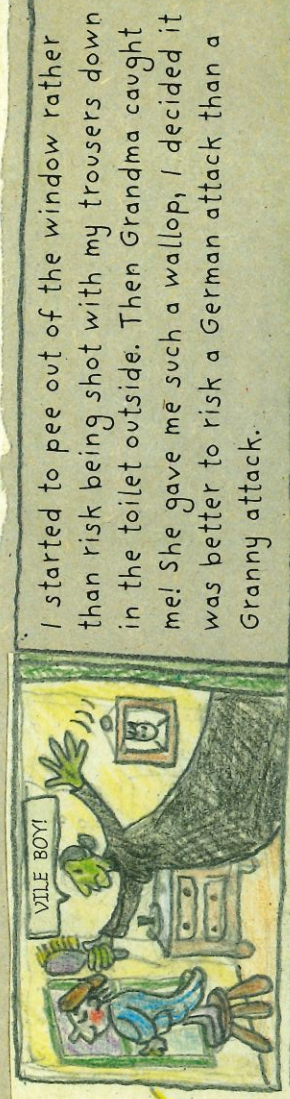 VILE BOY!
I started to pee out of the window rather
than risk being shot with my trousers down
in the toilet outside. Then Grandma caught
me! She gave me such a wallop, I decided it
was better to risk a German attack than a
Granny attack.